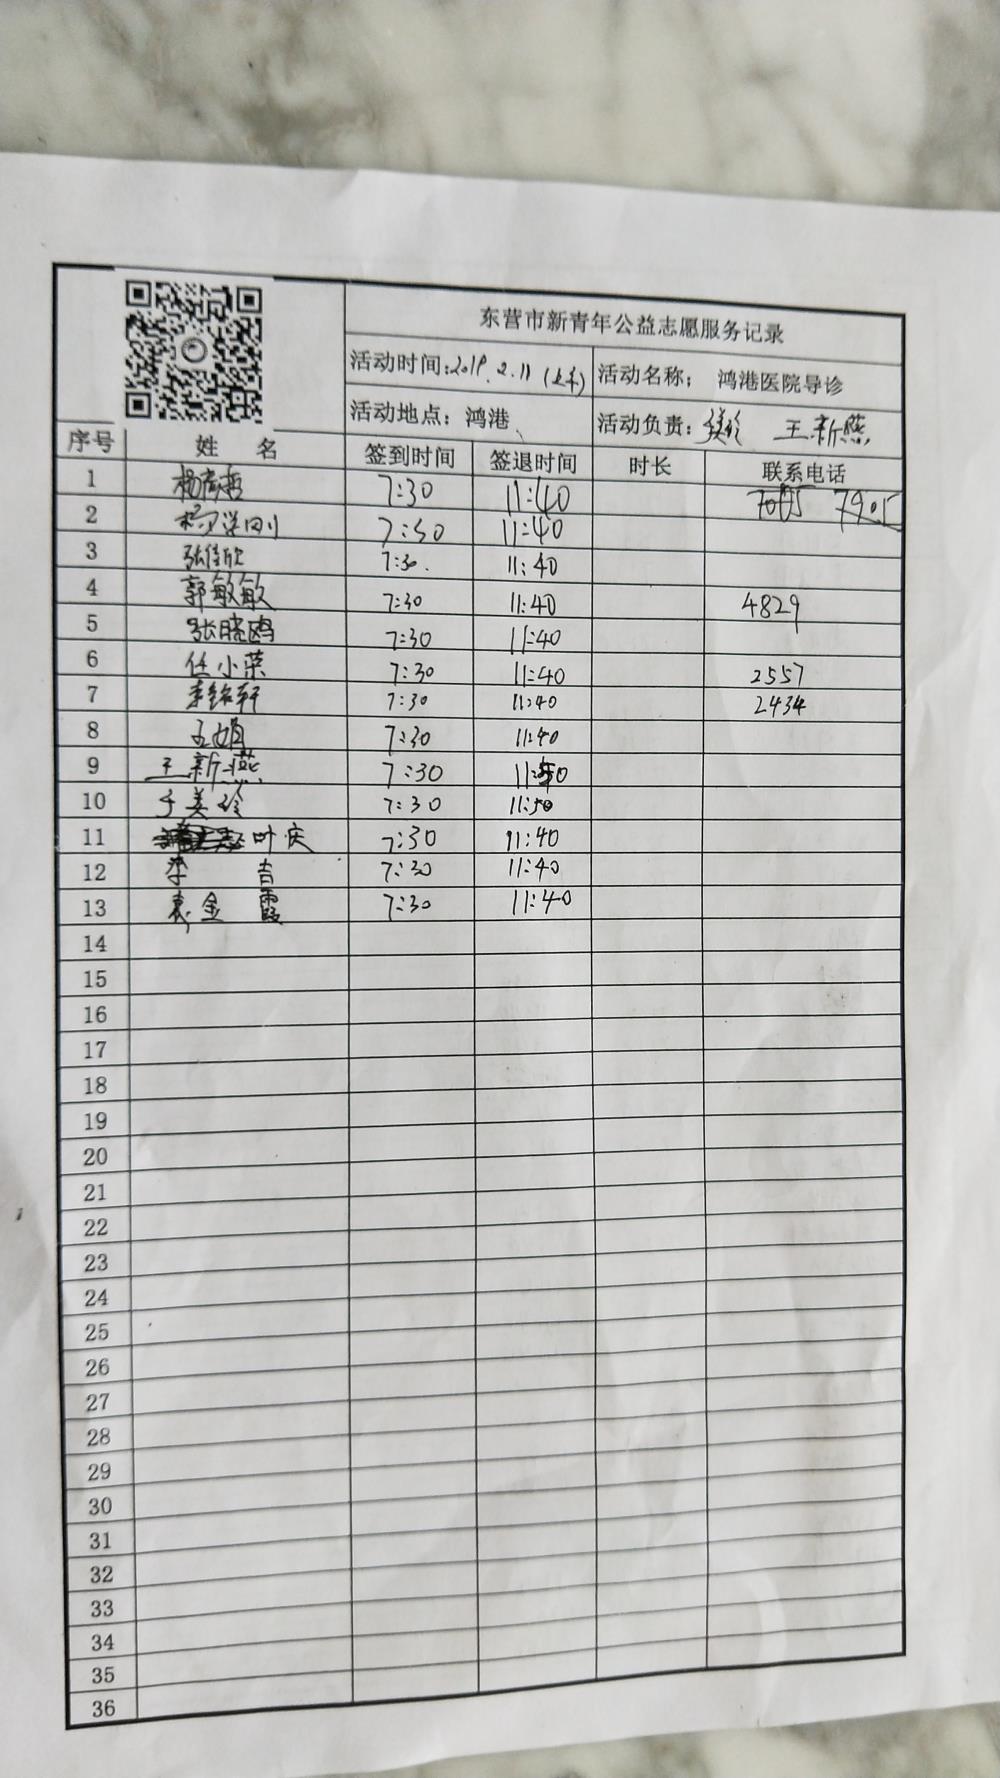 东营市新青年公益志愿服务记录
活动时间:2019.2.11(上午) 活动名称: 鸿港医院导诊
活动地点: 鸿港 活动负责: 王新燕
序号 姓 名 签到时间 签退时间 时长 联系电话
1 杨彦哲 7:30 11:40
2 7:50 11:40
3 张佳欣 7:30. 11:40
4 郭敏敏 7:30 11:40 4829
5 张晓鸥 7:30 11:40
6 任小荣 7:30 11:40 2557
7 李铭轩 7:30 11:40 2434
8 王娟 7:30 11:40
9 王新燕 7:30 11:50
10 于美玲 7:30 11:50
11 叶庆 7:30 11:40
12 李吉 7:30 11:40
13 袁金霞 7:30 11:40
14
15
16
17
18
19
20
21
22
23
24
25
26
27
28
29
30
31
32
33
34
35
36